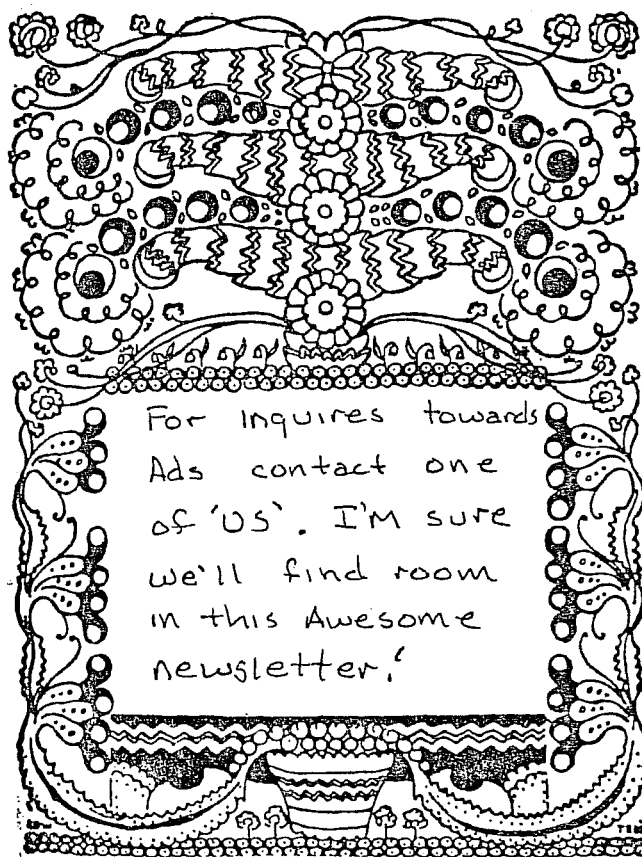 For inquires towards
Ads contact one
of 'US'. I'm sure
we'll find room
in this Awesome
newsletter!